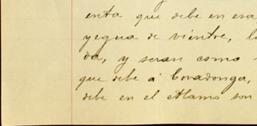 enta que debe en esa
yegua de vientre, l
da, y seran como
que debe á Covadonga,
debe en el Alamo son